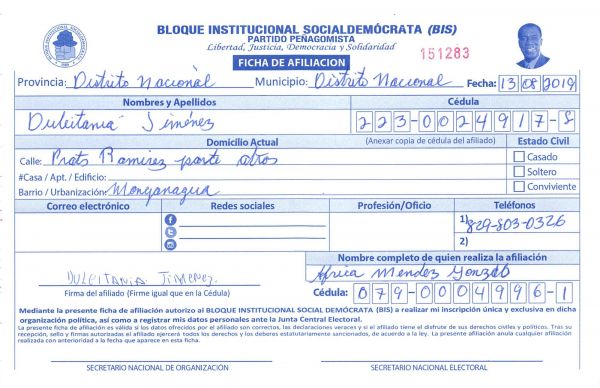 BLOQUE INSTITUCIONAL SOCIALDEMÓCRATA (BIS)
PARTIDO PEÑAGOMISTA
Libertad, Justicia, Democracia y Solidaridad
FICHA DE AFILIACION
151283
Provincia: Distrito Nacional Municipio: Distrito Nacional Fecha: 13/08/2019
Nombres y Apellidos Cédula
Duleitania Jiménez 223-0024917-8
Domicilio Actual (Anexar copia de cédula del afiliado) Estado Civil
Calle: Prats Ramirez parte atros Casado
#Casa / Apt. / Edificio: Soltero
Barrio / Urbanización: Monganagua Conviviente
Correo electrónico Redes sociales Profesión/Oficio Teléfonos
1) 829-803-0326
2)
Nombre completo de quien realiza la afiliación
DULEITANIA JIMENEZ Africa Mendez
Firma del afiliado (Firme igual que en la Cédula) Cédula: 079-0004996-1
Mediante la presente ficha de afiliación autorizo al BLOQUE INSTITUCIONAL SOCIAL DEMÓCRATA (BIS) a realizar mi inscripción única y exclusiva en dicha
organización política, así como a registrar mis datos personales ante la Junta Central Electoral.
La presente ficha de afiliación es válida si los datos ofrecidos por el afiliado son correctos, las declaraciones veraces y si el afiliado tiene el disfrute de sus derechos civiles y políticos. Tras su
recepción, sello y firmas autorizadas el afiliado ejercerá todos los derechos y los deberes estatutariamente sancionados, de acuerdo a la ley. La presente afiliación anula cualquier afiliación
realizada con anterioridad a la fecha que aparece en esta ficha.
SECRETARIO NACIONAL DE ORGANIZACIÓN SECRETARIO NACIONAL ELECTORAL